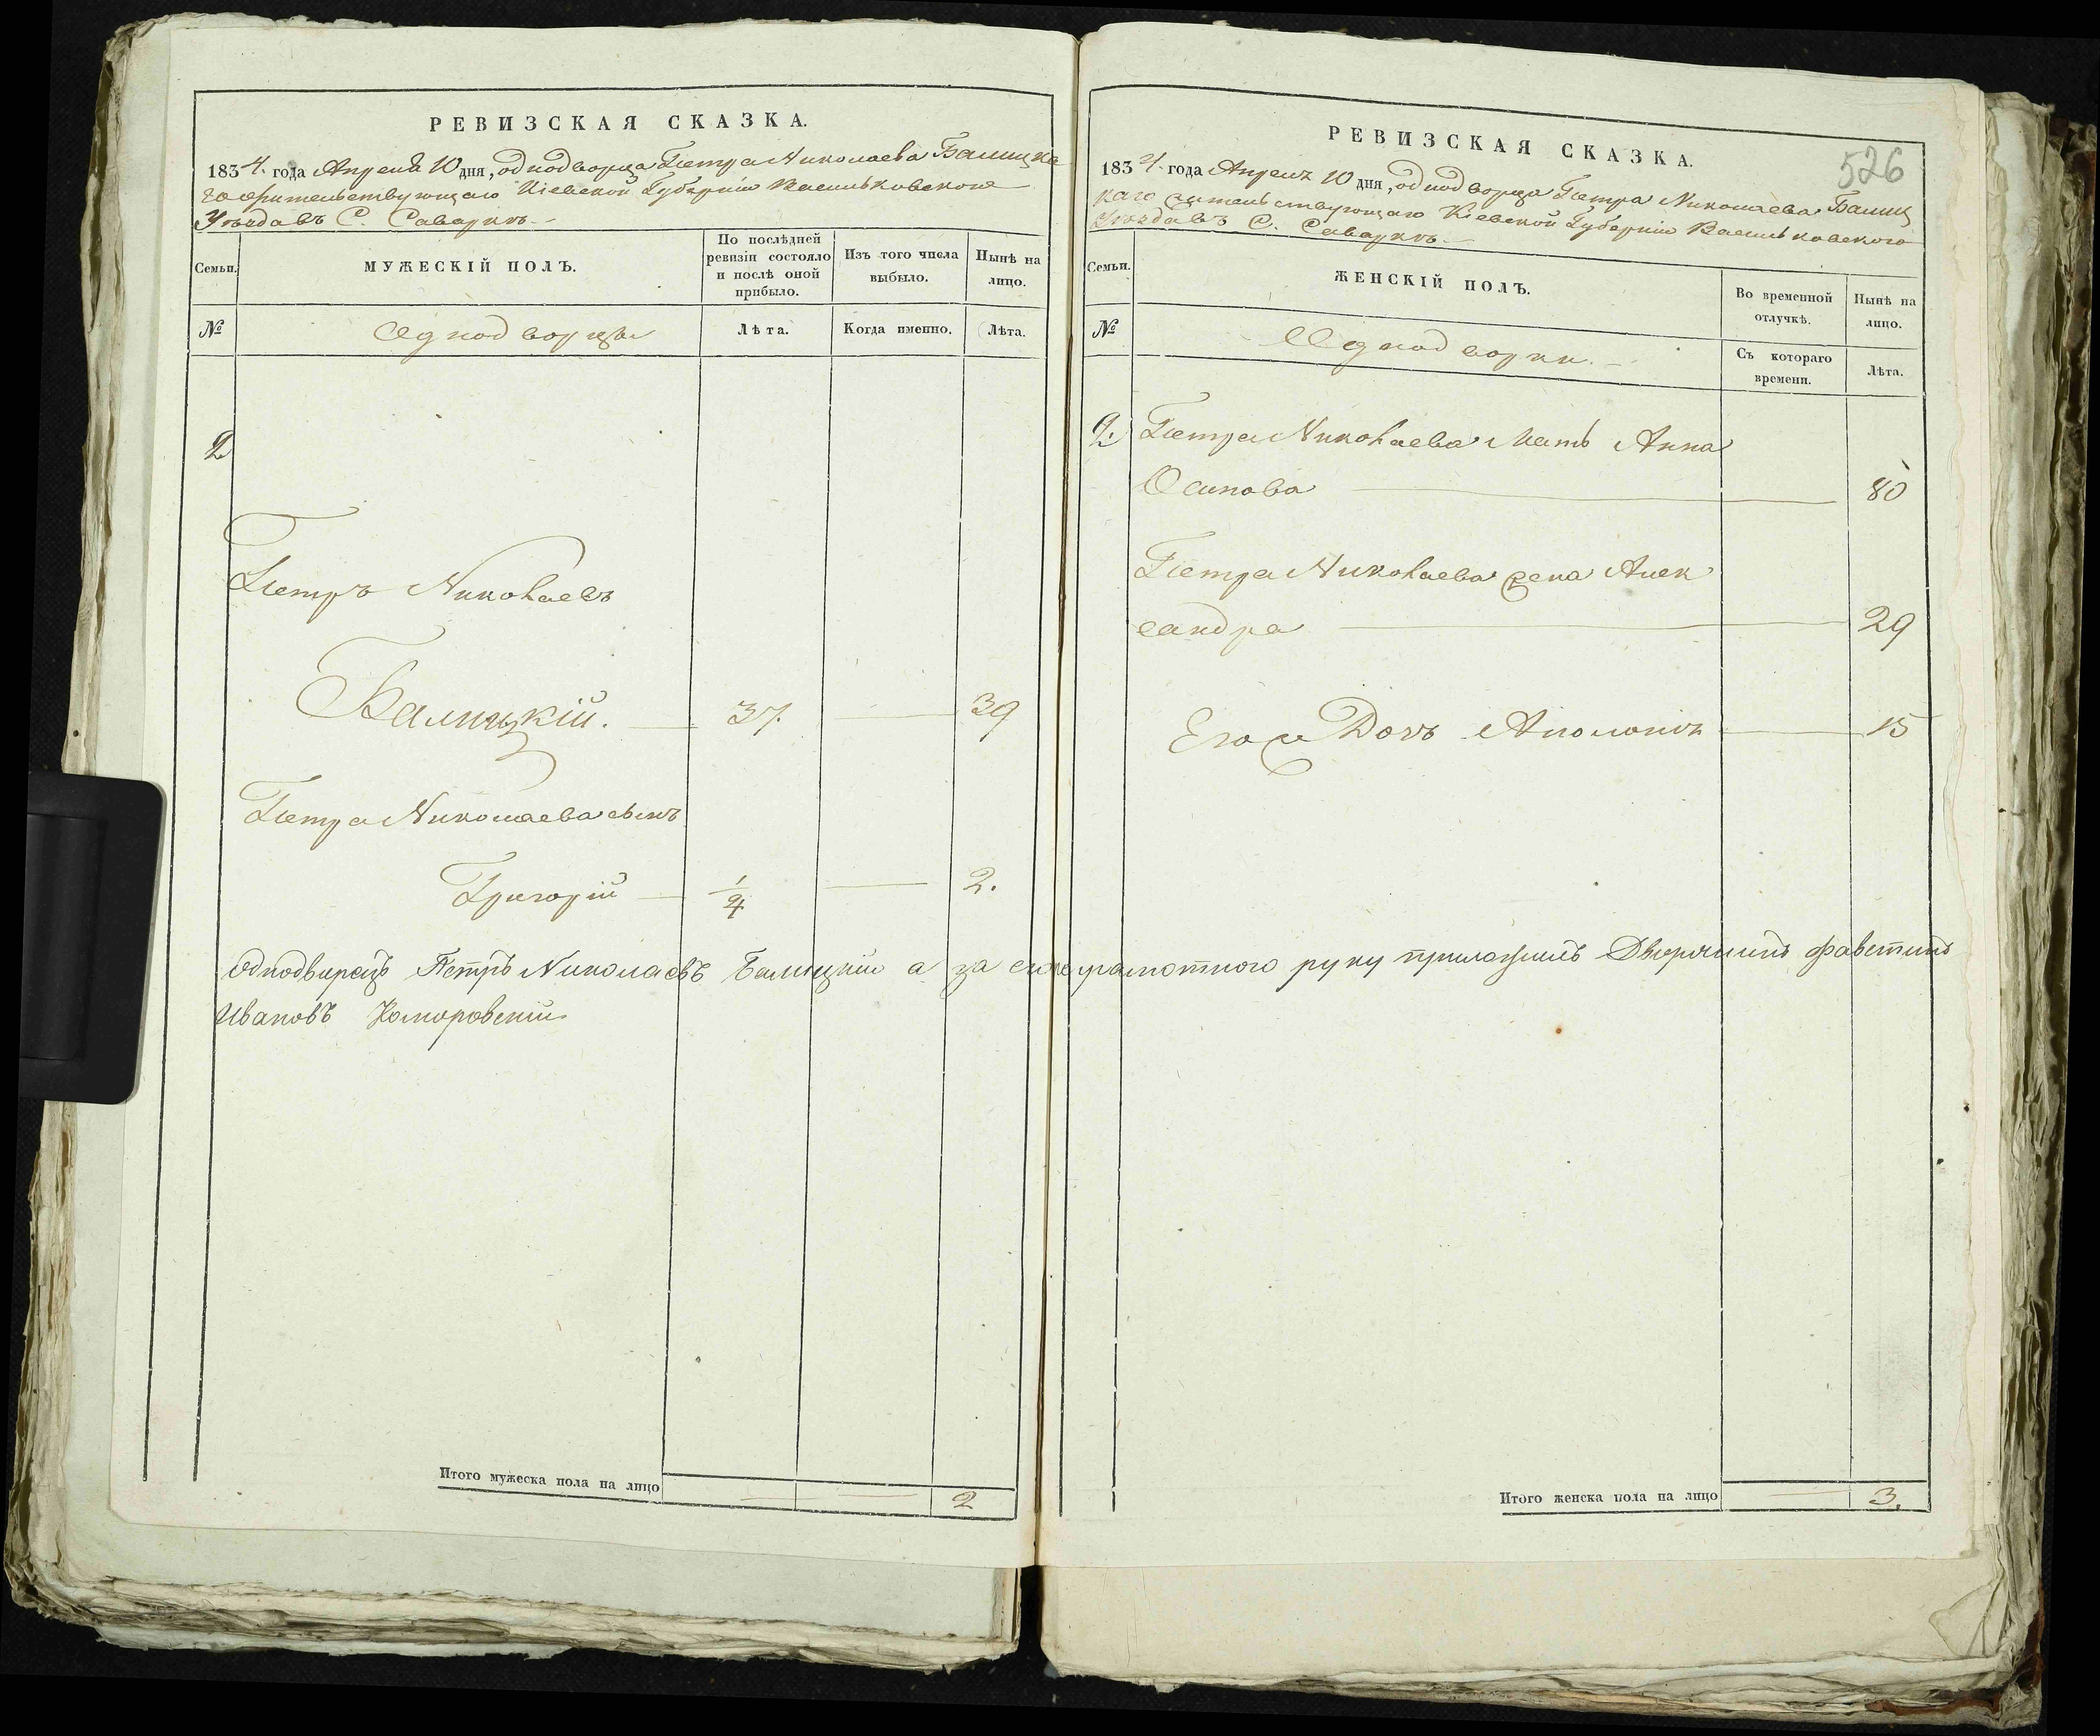 РЕВИЗСКАЯ СКАЗКА.
1834. года Апреля 10 дня, однодворца Петра Николаева Балицка
го жительствующаго Кіевской Губерніи Васильковского
Уѣзда въ С. Саваркѣ.
Семьи.
МУЖЕСКІЙ ПОЛЪ.
По послѣдней
ревизіи состояло
и послѣ оной
прибыло.
Изъ того числа
выбыло.
Нынѣ на
лицо.
№
Однодворцы
Лѣта.
Когда именно.
Лѣта.
2
Петръ Николаевъ
Балицкій. 37. 39
Петра Николаева сынъ
Григорій 1/4 2.
Однодворецъ Петръ Николаевъ Балицкій а за руку приложилъ Дворянинъ
Ивановъ Коморовскій
Итого мужеска пола на лицо 2
526
РЕВИЗСКАЯ СКАЗКА.
1834. года Апреля 10 дня, однодворца Петра Николаева Балиц
каго жительствующаго Кіевской Губерніи Васильковского
Уѣзда въ С. Саваркѣ.
Семьи.
ЖЕНСКІЙ ПОЛЪ.
Во временной
отлучкѣ.
Нынѣ на
лицо.
№
Однодворки.
Съ котораго
времени.
Лѣта.
2. Петра Николаева Мать Анна
Осипова 80
Петра Николаева жена Алек
сандра 29
Его же Дочь Аполонія 15
Итого женска пола на лицо 3.